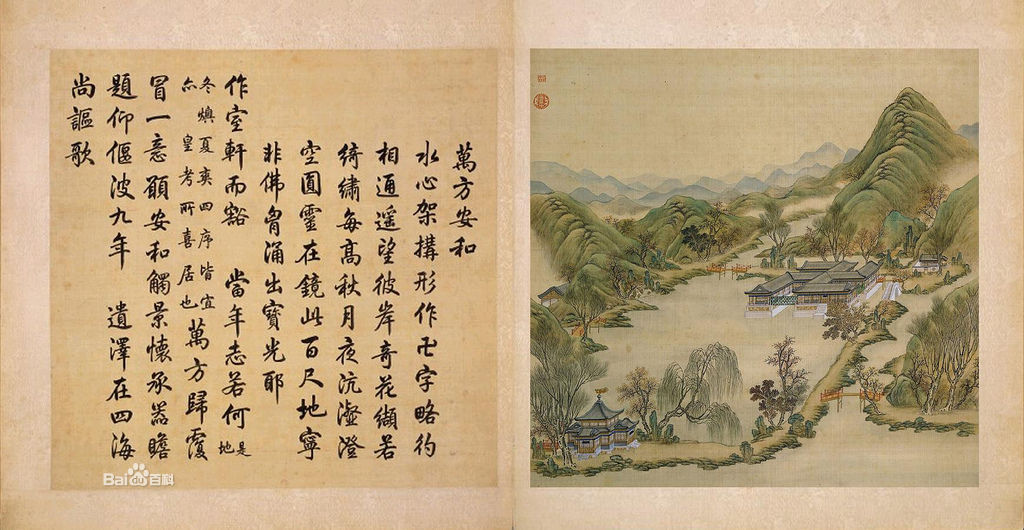 萬方安和
水心架構形作卍字略約
相通遥望彼岸奇花纈若
綺繡每髙秋月夜沆瀣澄
空圓靈在鏡此百尺地寧
非佛胷涌出寶光耶
作室軒而豁 當年志若何 是地
冬燠夏爽四序皆宜
亦皇考所喜居也 萬方歸覆
冒一意願安和觸景懷承器瞻
題仰偃波九年 遺澤在四海
尚謳歌
Baidu百科